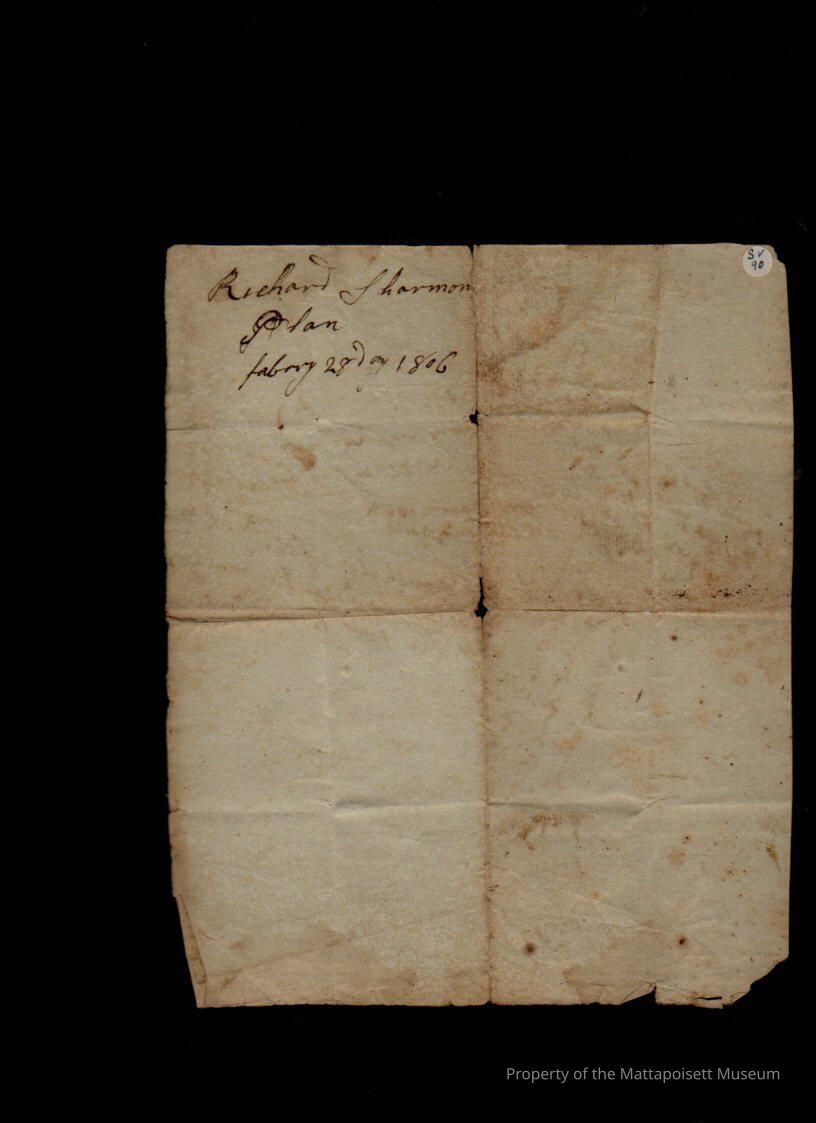 Richard Sharmon
Plan
fabery 28 day 1806
SV
90
Property of the Mattapoisett Museum